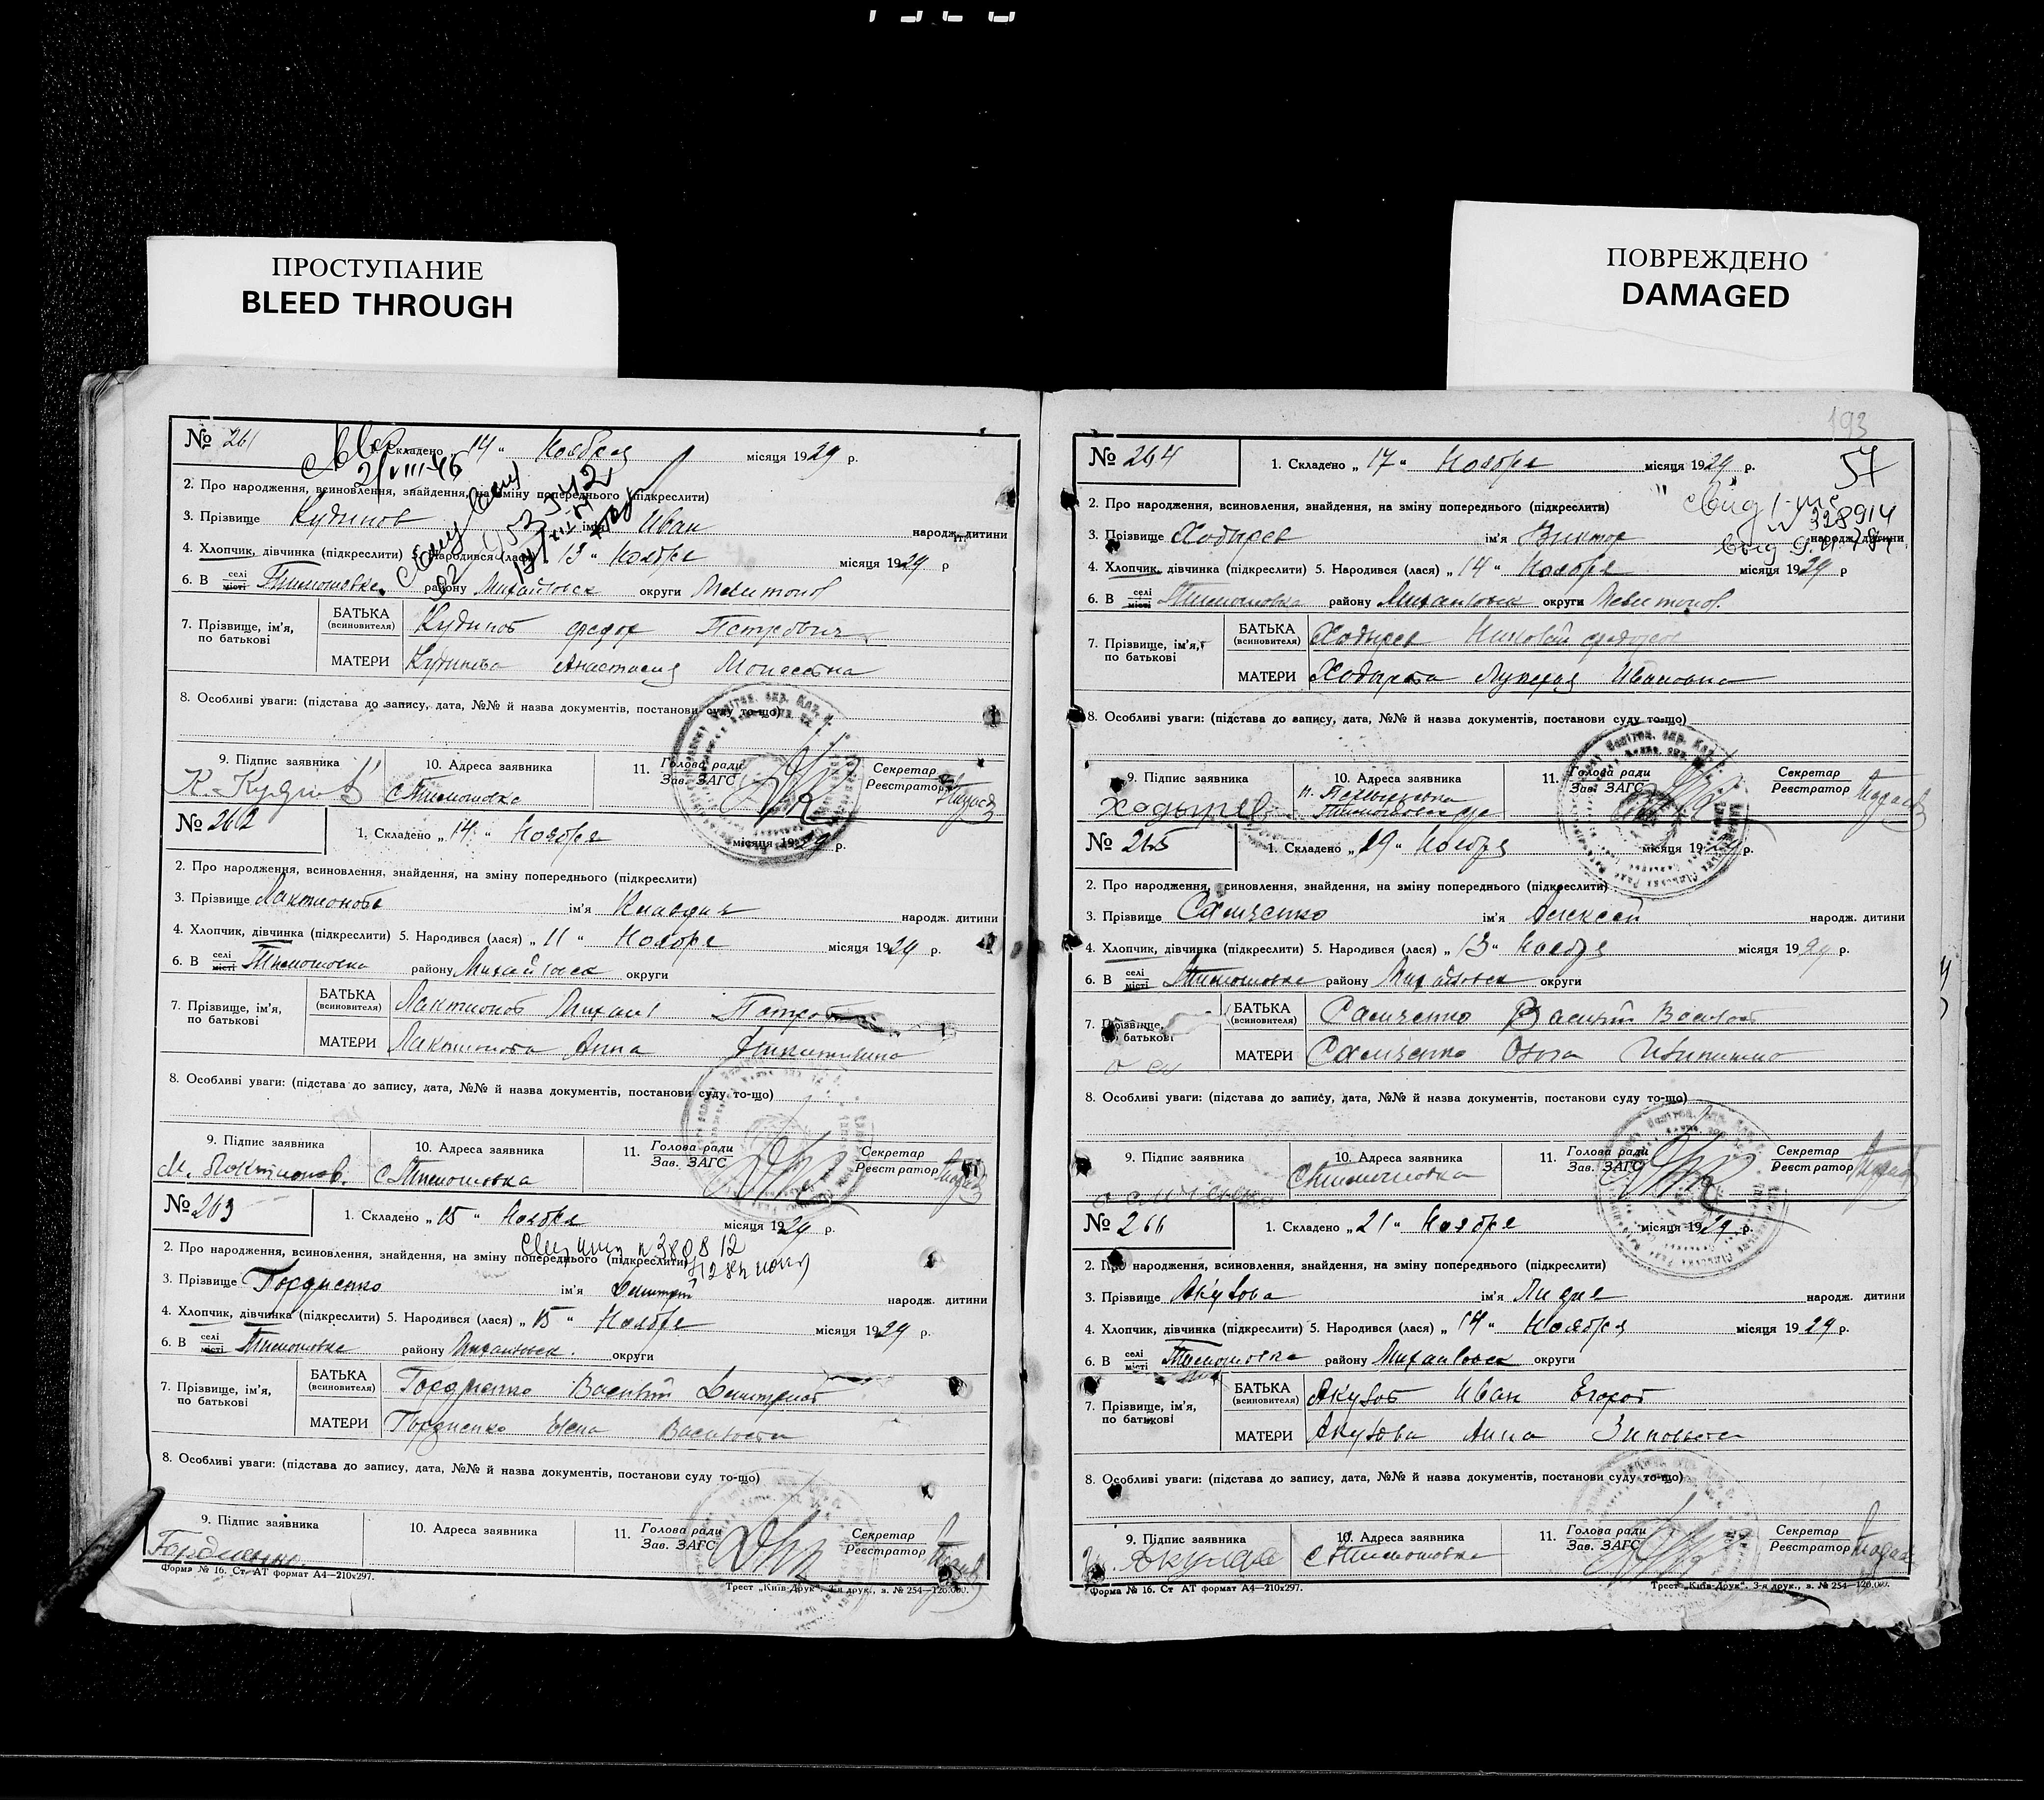 ПРОСТУПАНИЕ
BLEED THROUGH
ПОВРЕЖДЕНО
DAMAGED
№ 261
1. Складено „ 14 “ Ноября місяця 1929 р.
2/VIII-46
2. Про народження, всиновлення, знайдення, на зміну попереднього (підкреслити)
3. Прізвище Кудинов ім'я Иван народж. дитини
4. Хлопчик, дівчинка (підкреслити) 5. Народився (лася) „ 13 “ Ноября місяця 1929 р
6. В селі місті Тимошовке району Михайловск округи Мелитопол
7. Прізвище, ім'я, по батькові
БАТЬКА (всиновителя) Кудинов Федор Петрович
МАТЕРИ Кудинова Анастасия Моисеевна
8. Особливі уваги: (підстава до запису, дата, №№ й назва документів, постанови суду то-що)
9. Підпис заявника 10. Адреса заявника 11. Голова ради Зав. ЗАГС Секретар Реєстратор
с Тимошовка
№ 262
1. Складено „ 14 “ Ноября місяця 1929 р.
2. Про народження, всиновлення, знайдення, на зміну попереднього (підкреслити)
3. Прізвище Лактионова ім'я Клавдия народж. дитини
4. Хлопчик, дівчинка (підкреслити) 5. Народився (лася) „ 11 “ Ноября місяця 1929 р.
6. В селі місті Тимошовка району Михайловск округи
7. Прізвище, ім'я, по батькові
БАТЬКА (всиновителя) Лактионов Михаил Петров
МАТЕРИ Лактионова Анна Никитична
8. Особливі уваги: (підстава до запису, дата, №№ й назва документів, постанови суду то-що)
9. Підпис заявника 10. Адреса заявника 11. Голова ради Зав. ЗАГС Секретар Реєстратор
М. Локтионов. с Тимошовка
№ 263
1. Складено „ 15 “ Ноября місяця 1929 р.
2. Про народження, всиновлення, знайдення, на зміну попереднього (підкреслити)
3. Прізвище Гордиенко ім'я Дмитрий народж. дитини
4. Хлопчик, дівчинка (підкреслити) 5. Народився (лася) „ 15 “ Ноября місяця 1929 р.
6. В селі місті Тимошовке району Михайловск. округи
7. Прізвище, ім'я, по батькові
БАТЬКА (всиновителя) Гордиенко Василий Дмитриев
МАТЕРИ Гордиенко Елена Васильевна
8. Особливі уваги: (підстава до запису, дата, №№ й назва документів, постанови суду то-що)
9. Підпис заявника 10. Адреса заявника 11. Голова ради Зав. ЗАГС Секретар Реєстратор
Гордиенко.
Форма № 16. Ст. АТ формат А4—210х297. Трест „Київ-Друк“, 3-я друк., з. № 254—120.000.
193
57
№ 264
1. Складено „ 17 “ Ноября місяця 1929 р.
2. Про народження, всиновлення, знайдення, на зміну попереднього (підкреслити)
328914
3. Прізвище Ходырев ім'я Виктор народж. дитини
4. Хлопчик, дівчинка (підкреслити) 5. Народився (лася) „ 14 “ Ноября місяця 1929 р
6. В селі місті Тимошовка району Михайловск округи Мелитопол.
7. Прізвище, ім'я, по батькові
БАТЬКА (всиновителя) Ходырев Николай Федоров
МАТЕРИ Ходырева Лукерия Ивановна
8. Особливі уваги: (підстава до запису, дата, №№ й назва документів, постанови суду то-що)
9. Підпис заявника 10. Адреса заявника 11. Голова ради Зав. ЗАГС Секретар Реєстратор
Ходырев
№ 265
1. Складено „ 19 “ Ноября місяця 1929 р.
2. Про народження, всиновлення, знайдення, на зміну попереднього (підкреслити)
3. Прізвище Самченко ім'я Алексей народж. дитини
4. Хлопчик, дівчинка (підкреслити) 5. Народився (лася) „ 13 “ Ноября місяця 1929 р.
6. В селі місті Тимошовке району Михайловск округи
7. Прізвище, по батькові
БАТЬКА (всиновителя) Самченко Василий Васильев
МАТЕРИ Самченко
8. Особливі уваги: (підстава до запису, дата, №№ й назва документів, постанови суду то-що)
9. Підпис заявника 10. Адреса заявника 11. Голова ради Зав. ЗАГС Секретар Реєстратор
с Тимошовка
№ 266
1. Складено „ 21 “ Ноября місяця 1929 р.
2. Про народження, всиновлення, знайдення, на зміну попереднього (підкреслити)
3. Прізвище Акулова ім'я Лидия народж. дитини
4. Хлопчик, дівчинка (підкреслити) 5. Народився (лася) „ 14 “ Ноября місяця 1929 р.
6. В селі місті Тимошовка району Михайловск округи
7. Прізвище, ім'я, по батькові
БАТЬКА (всиновителя) Акулов Иван Егоров
МАТЕРИ Акулова Анна Зиновьевна
8. Особливі уваги: (підстава до запису, дата, №№ й назва документів, постанови суду то-що)
9. Підпис заявника 10. Адреса заявника 11. Голова ради Зав. ЗАГС Секретар Реєстратор
с Тимошовка
Форма № 16. Ст АТ формат А4—210х297. Трест „Київ-Друк“. 3-я друк., з. № 254—120.000.